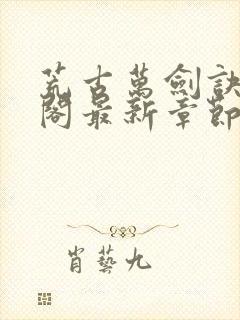 荒古萬劍訣
閣最新章節
肖藝九